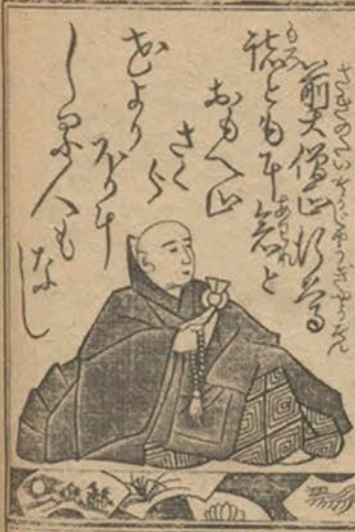 さきのだいそうじやうぎやうそん
前大僧正行尊
もろ
諸ともに哀と
あはれ
おもへ山
さくら
花より
ほかに
しる人も
なし